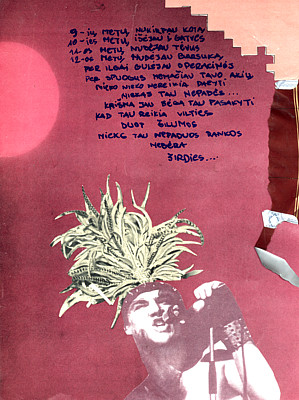 9-ių METŲ, NUKIRPAU KOTĄ
10-ies METŲ, IŠĖJAU Į GATVĘS
11-os METŲ, NUDĖJAU TĖVUS
12-os METŲ, NUDĖJAU BARSUKĄ
PER ILGAI GULĖJAU OPERACINĖJ
PER SPUOGUS MAČIAU TAVO AKIŲ
NIEKO NEREIKIA DARYTI
„NIEKAS TAU NEPADĖS...
KRIŠNA JAU BĖGA TAU PASAKYTI
KAD TAU REIKIA VILTIES
DUOT ŠILUMOS
NIEKS TAU NEPADUOS RANKOS
NEBĖRA
ŠIRDIES...